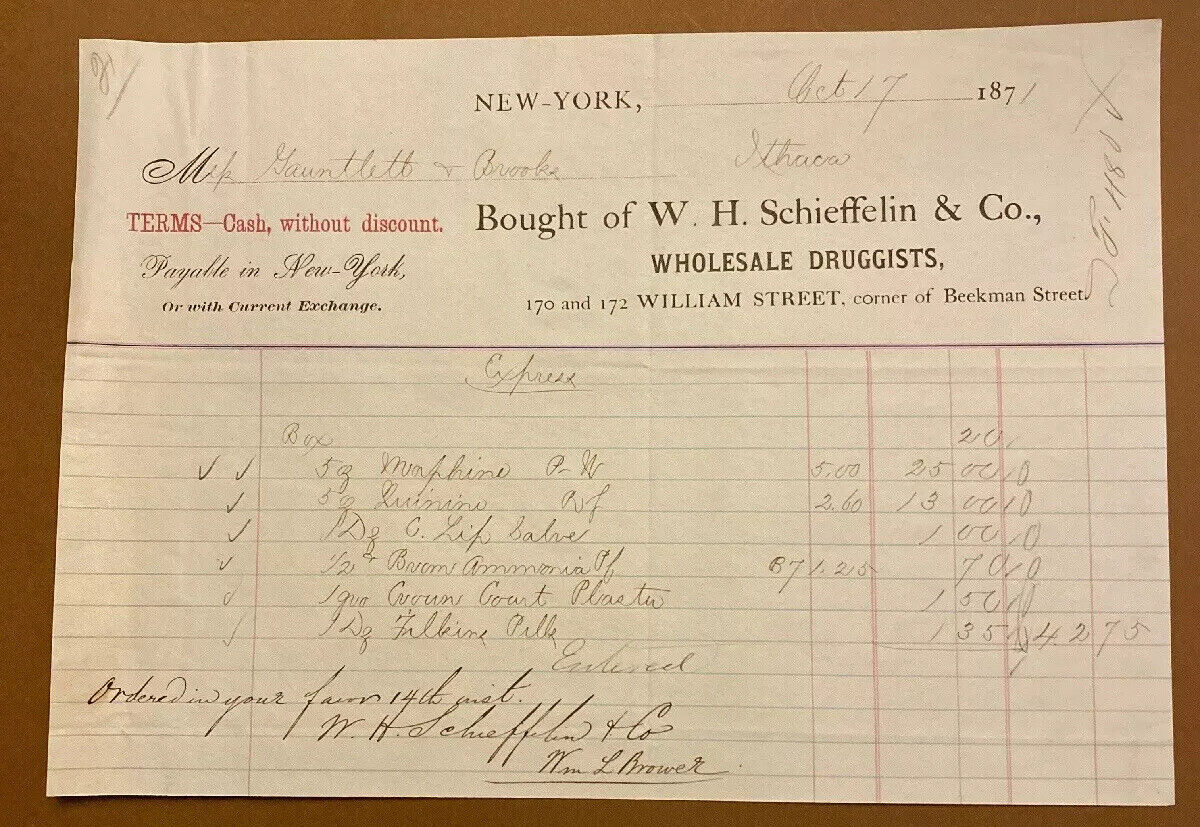 NEW-YORK, Oct 17 1871
Mess Gauntlett & Brooks Ithaca
TERMS—Cash, without discount.
Bought of W. H. Schieffelin & Co.,
Payable in New-York,
WHOLESALE DRUGGISTS,
Or with Current Exchange.
170 and 172 WILLIAM STREET, corner of Beekman Street.
Express
Box 20
5 oz Morphine P-W 5.00 25 00
5 oz Quinine 2.60 13 00
1 Dz C. Lip Salve 1 00
1/2 Brom Ammonia 1.25 70
1 gro Crown Court Plaster 1 50
1 Dz Pills 1 35 42 75
Entered
Ordered in your favor 14th inst.
W. H. Schieffelin & Co
Wm L Brower